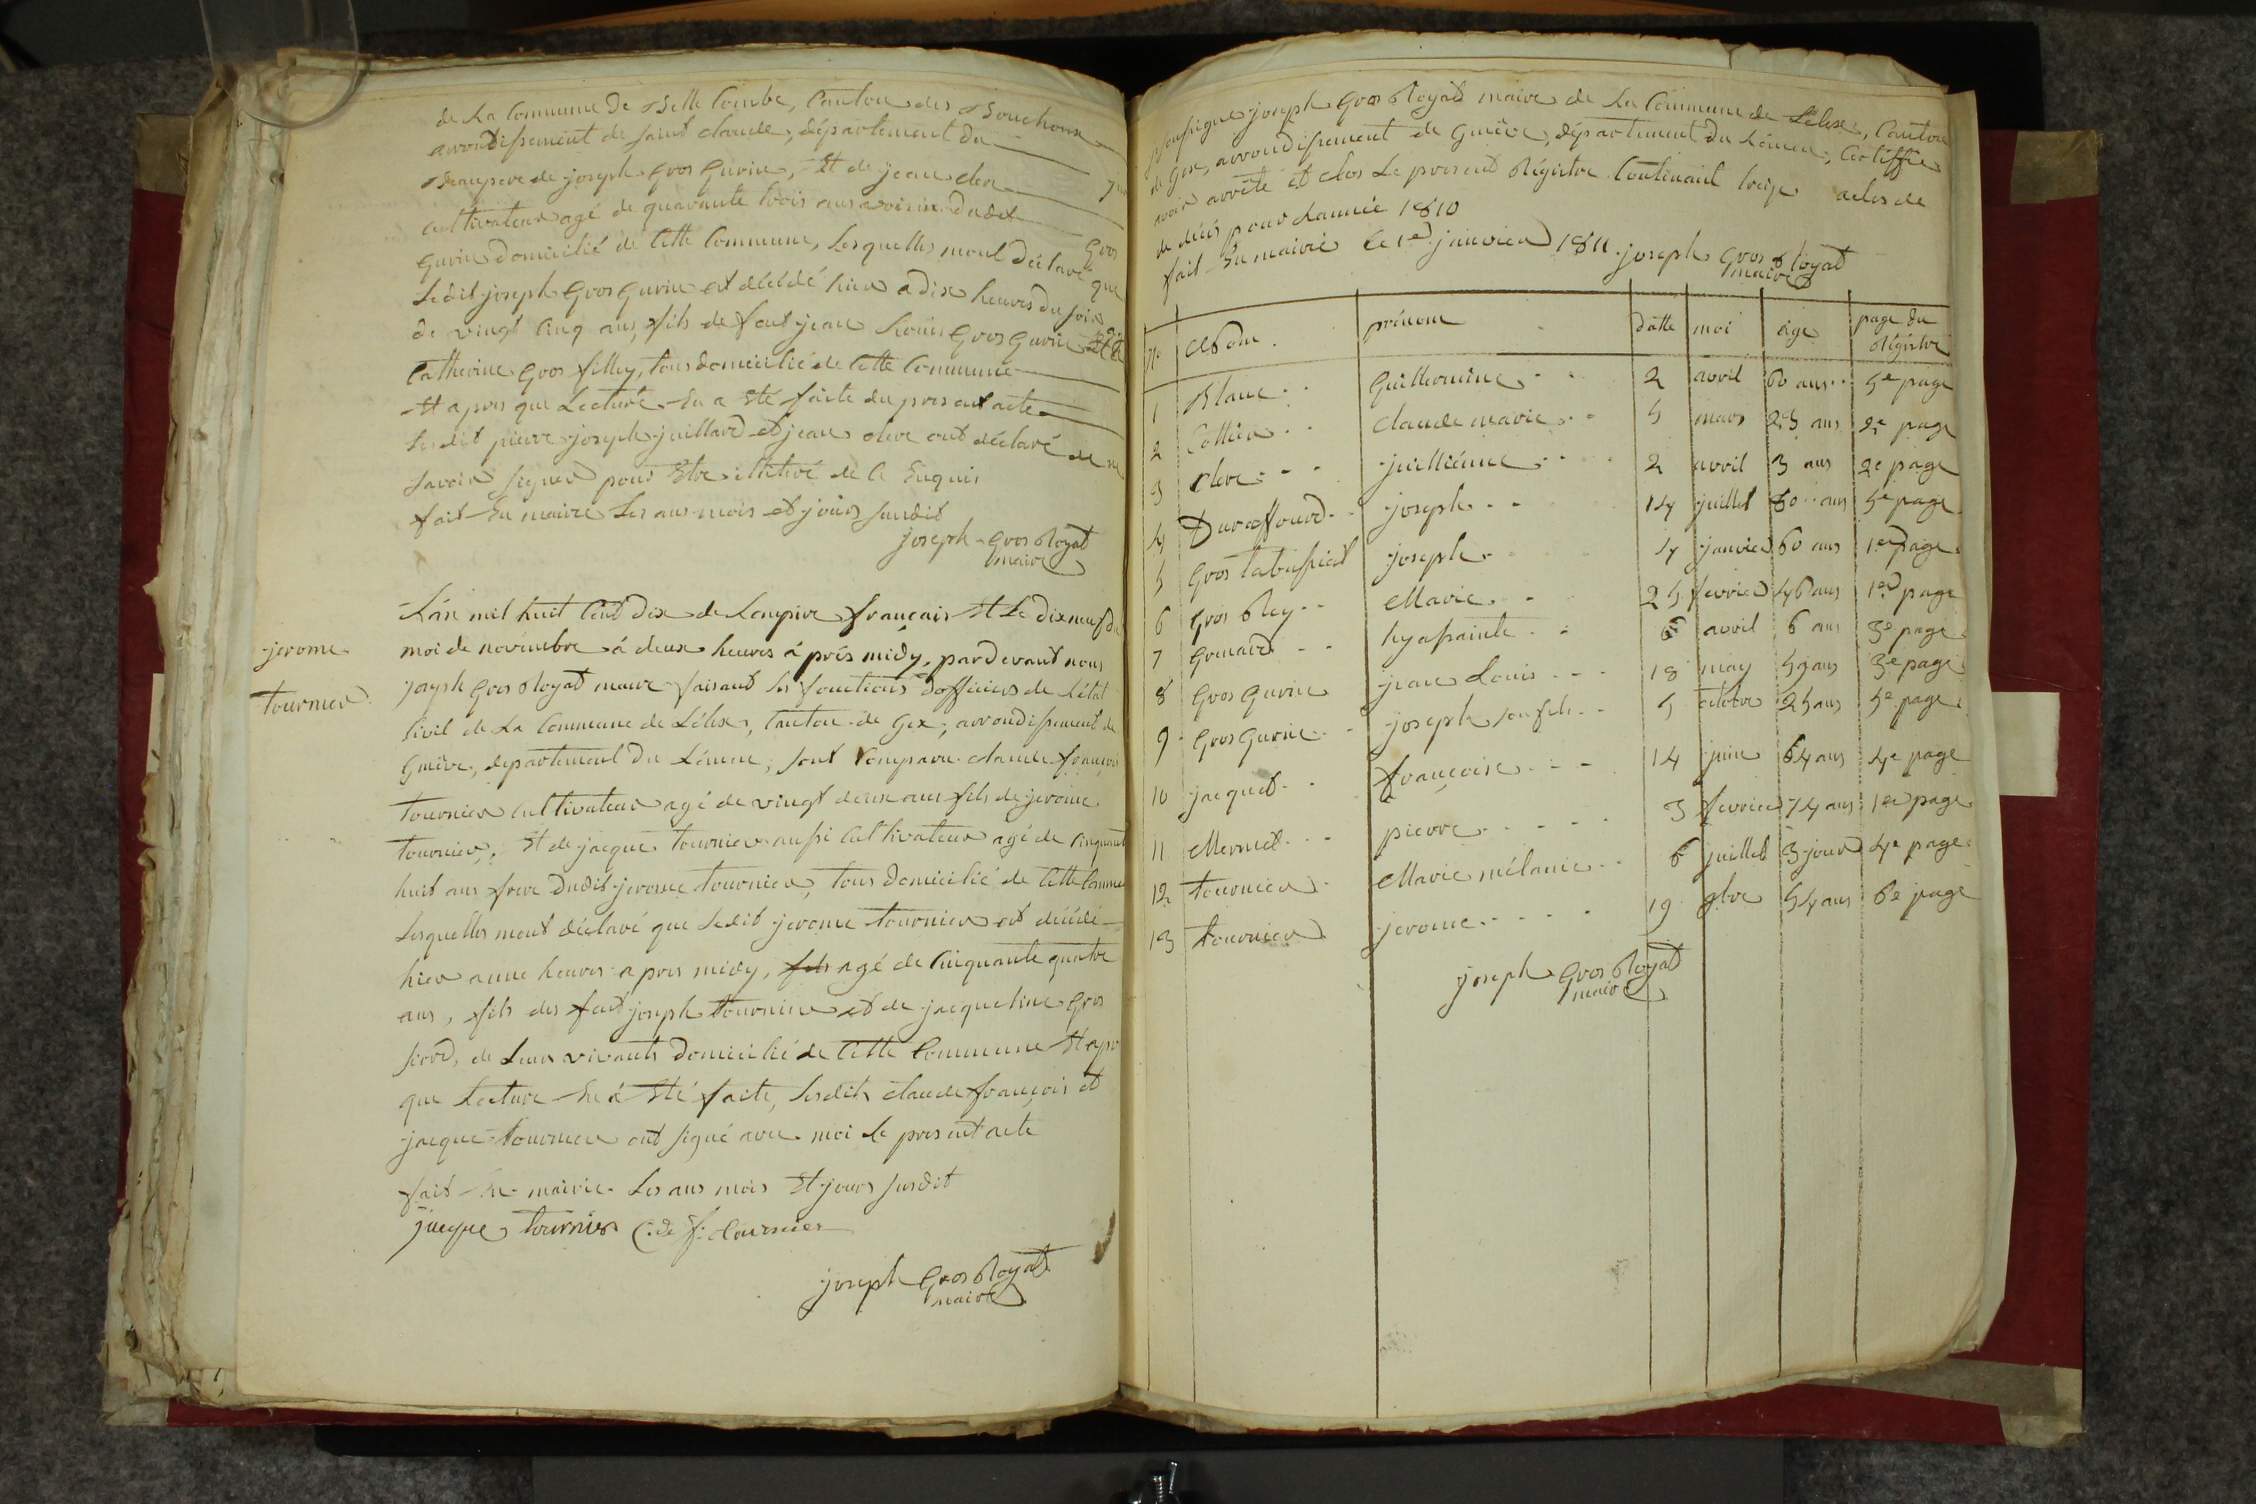 de La Commune De Belle Combe, Canton des Bouchoux
arrondissement de saint claude, département du
Beaupere de joseph gros Gurin, Et de jean cler
cultivateur agé de quarante trois ans voisin dudit Gros
Gurin domicilié de Cette Commune, Lesquelles mont déclaré que
Ledit joseph Gros Gurin est décédé hier a dix heures du soir agé
de vingt Cinq ans, fils de feut jean Louis Gros Gurin Et de
Catherine Gros filley, tous domicilié de Cette Commune
Et apres que Lecture En a Eté faite du present acte
Lesdit pierre joseph juillard et jean clerc ont déclaré de ne
savoir signer pour Etre illitéré de Ce Enquis
fait En mairie Les ans mois et jours susdit
joseph Gros Royat
maire
jerome
tournier
L'an mil huit Cent Dix de Lempire français Et Le dixneuf du
moi de novembre à deux heures à prés midy, pardevant nous
joseph gros Royat maire faisant les fonctions dofficiers de L'état
sivil de La Commune de Lélex, Canton de Gex, arrondissement de
Genève, departement Du Léman, sont Comparu claude françois
tournier cultivateur agé de vingt deux ans fils de jerome
tournier, Et de jacque tournier aussi cultivateur agé de Cinquante
huit ans frere Dudit jerome tournier, tous domicilié de Cette Commune
Lesquelles mont déclaré que Ledit jerome tournier est décédé
hier a une heures apres midy, fils agé de Cinquante quatre
ans, fils des feut joseph tournier et de jacqueline Gros
fiord, de Leur vivants domicilié de Cette Commune Et apres
que Lecture En à Eté faite, Lesdits claude françois et
jacque tournier ont signé avec moi Le present acte
fait En mairie Les ans mois Et jours susdit
jacque tournier C:de f: tournier
joseph Gros Royat
maire
joseph Gros Royat maire de La Commune de Lélex, Canton
de Gex, arrondissement de Genève, département du Léman, Certiffie
avoir arrêté et clos Le present Régistre Contenant treize actes de
de décés pour L'année 1810
fait En mairie Le 1er janvier 1811. joseph Gros Royat
maire
N° Nom prénom datte moi age page du Régistre
1 Blanc Guillermine 2 avril 60 ans 5e page
2 Cottier claude marie 5 mars 23 ans 2e page
3 clerc juillienne 2 avril 3 ans 2e page
4 Duraffourd joseph 14 juillet 80 ans 5e page
5 Gros tabussiat joseph 4 janvier 60 ans 1er page
6 Gros Rey Marie 25 fevrier 46 ans 1er page
7 Grenard hyassainte 6 avril 6 ans 3e page
8 Gros Gurin jean Louis 18 may 59 ans 3e page
9 Gros Gurin joseph son fils 5 octobre 25 ans 5e page
10 jacquet françoise 14 juin 64 ans 4e page
11 Mermet pierre 3 fevrier 74 ans 1er page
12 tournier Marie mélanie 6 juillet 3 jours 4e page
13 tournier jerome 19 9bre 54 ans 6e page
joseph Gros Royat
maire